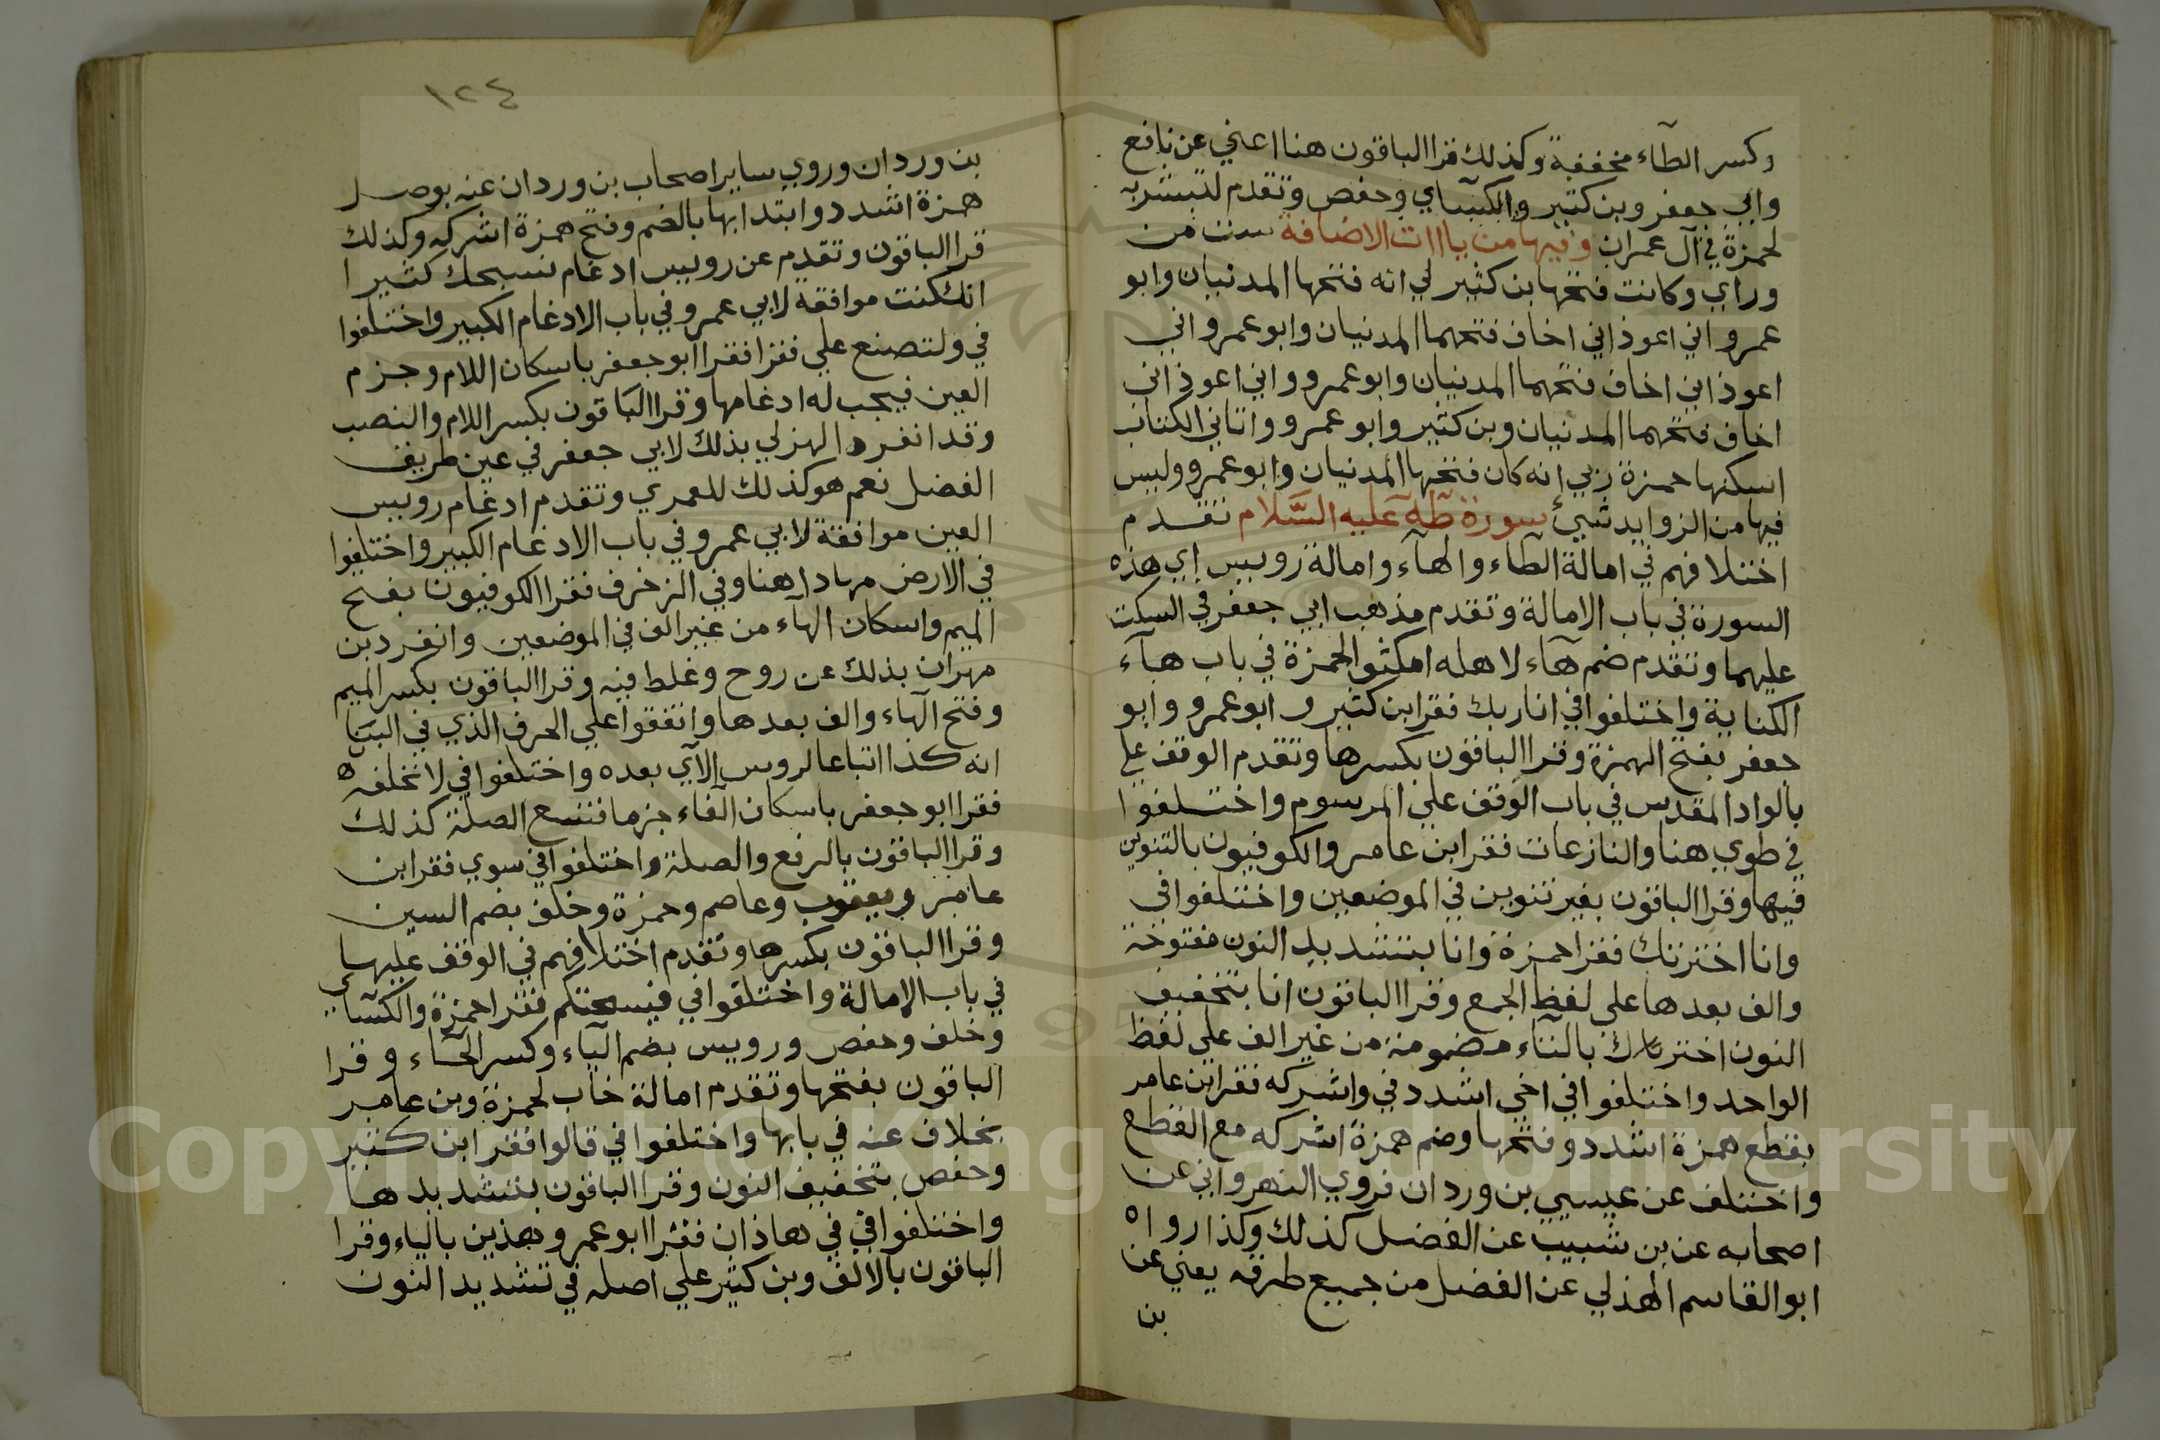 وكسر الطآء مخففة وكذلك قرا الباقون هنا اعني عن نافع
وابي جعفر وبن كثير والكسآي وحفص وتقدم لتبشر به
لحمزة في آل عمران وفيها من ياات الاضافة ست من
وراي وكانت فتحها بن كثير لي انه فتحها المدنيان وابو
عمرو اني اعوذ اني اخاف فتحهما المدنيان وابو عمرو اني
اعوذ اني اخاف فتحهما المدنيان وابو عمرو واني اعوذ اني
اخاف فتحهما المدنيان وبن كثير وابو عمرو واتاني الكتاب
اسكنها حمزة ربي إنه كان فتحها المدنيان وابو عمرو وليس
فيها من الزوايد شيء سورة طه عليه السَّلام تقدم
اختلافهم في امالة الطاء والهآء وامالة روييس اي هذه
السورة في باب الامالة وتقدم مذهب ابي جعفر في السكت
عليهما وتقدم ضم هآء لاهله امكثوا لحمزة في باب هآء
الكناية واختلفوا في انا ربك فقرا بن كثير وابو عمرو وابو
جعفر بفتح الهمزة وقرا الباقون بكسرها وتقدم الوقف علي
بالواد المقدس في باب الوقف علي المرسوم واختلفوا
في طوي هنا والنازعات فقرا ابن عامر والكوفيون بالتنوين
فيهما وقرا الباقون بغير تنوين في الموضعين واختلفوا في
وانا اخترتك فقرا حمزة وانا بتشديد النون مفتوحة
والف بعدها علي لفظ الجمع وقرا الباقون انا بتخفيف
النون اخترتك بالتآء مضمومة من غير الف علي لفظ
الواحد واختلفوا في اخي اشدد في واشركه فقرا ابن عامر
بقطع همزة اشدد وفتحها وضم همزة اشركه مع القطع
واختلف عن عيسي بن وردان فروي النهرواني عن
اصحابه عن بن شبيب عن الفضل كذلك وكذا رواه
ابو القاسم الهذلي عن الفضل من جميع طرقه يعني عن
بن
١٢٤
بن وردان وروي ساير اصحاب بن وردان عنه بوصل
همزة اشدد وابتدا بها بالضم وفتح همزة اشركه وكذلك
قرا الباقون وتقدم عن روييس ادغام نسبحك كثيرا
انك كنت موافقة لابي عمرو في باب الادغام الكبير واختلفوا
في ولتصنع علي فقرا ابو جعفر باسكان اللام وجزم
العين فيجب له ادغامها وقرا الباقون بكسر اللام والنصب
وقد انفرد الهزلي بذلك لابي جعفر في عين طريق
الفضل نعم هو كذلك للعمري وتقدم ادغام روييس
العين موافقة لابي عمرو في باب الادغام الكبير واختلفوا
في الارض مهادا هنا وفي الزخرف فقرا الكوفيون بفتح
الميم واسكان الهآء من غير الف في الموضعين وانفرد بن
مهران بذلك عن روح وغلط فيه وقرا الباقون بكسر الميم
وفتح الهآء والف بعدها واتفقوا علي الحرف الذي في النبا
انه كذا اتباعا لروس الآي بعده واختلفوا في لا نخلفه
فقرا ابو جعفر باسكان الفاء جزما فتنسع الصلة كذلك
وقرا الباقون بالرفع والصلة واختلفوا في سوي فقرا ابن
عامر ويعقوب وعاصم وحمزة وخلف بضم السين
وقرا الباقون بكسرها وتقدم اختلافهم في الوقف عليها
في باب الامالة واختلفوا في فيسحتكم فقرا حمزة والكسآي
وخلف وحفص وروييس بضم اليآء وكسر الحآء وقرا
الباقون بفتحها وتقدم امالة خاب لحمزة وبن عامر
بخلاف عنه في بابها واختلفوا في قالوا فقرا ابن كثير
وحفص بتخفيف النون وقرا الباقون بتشديدها
واختلفوا في في هاذان فقرا ابو عمرو بهذين بالياء وقرا
الباقون بالالف وبن كثير علي اصله في تشديد النون